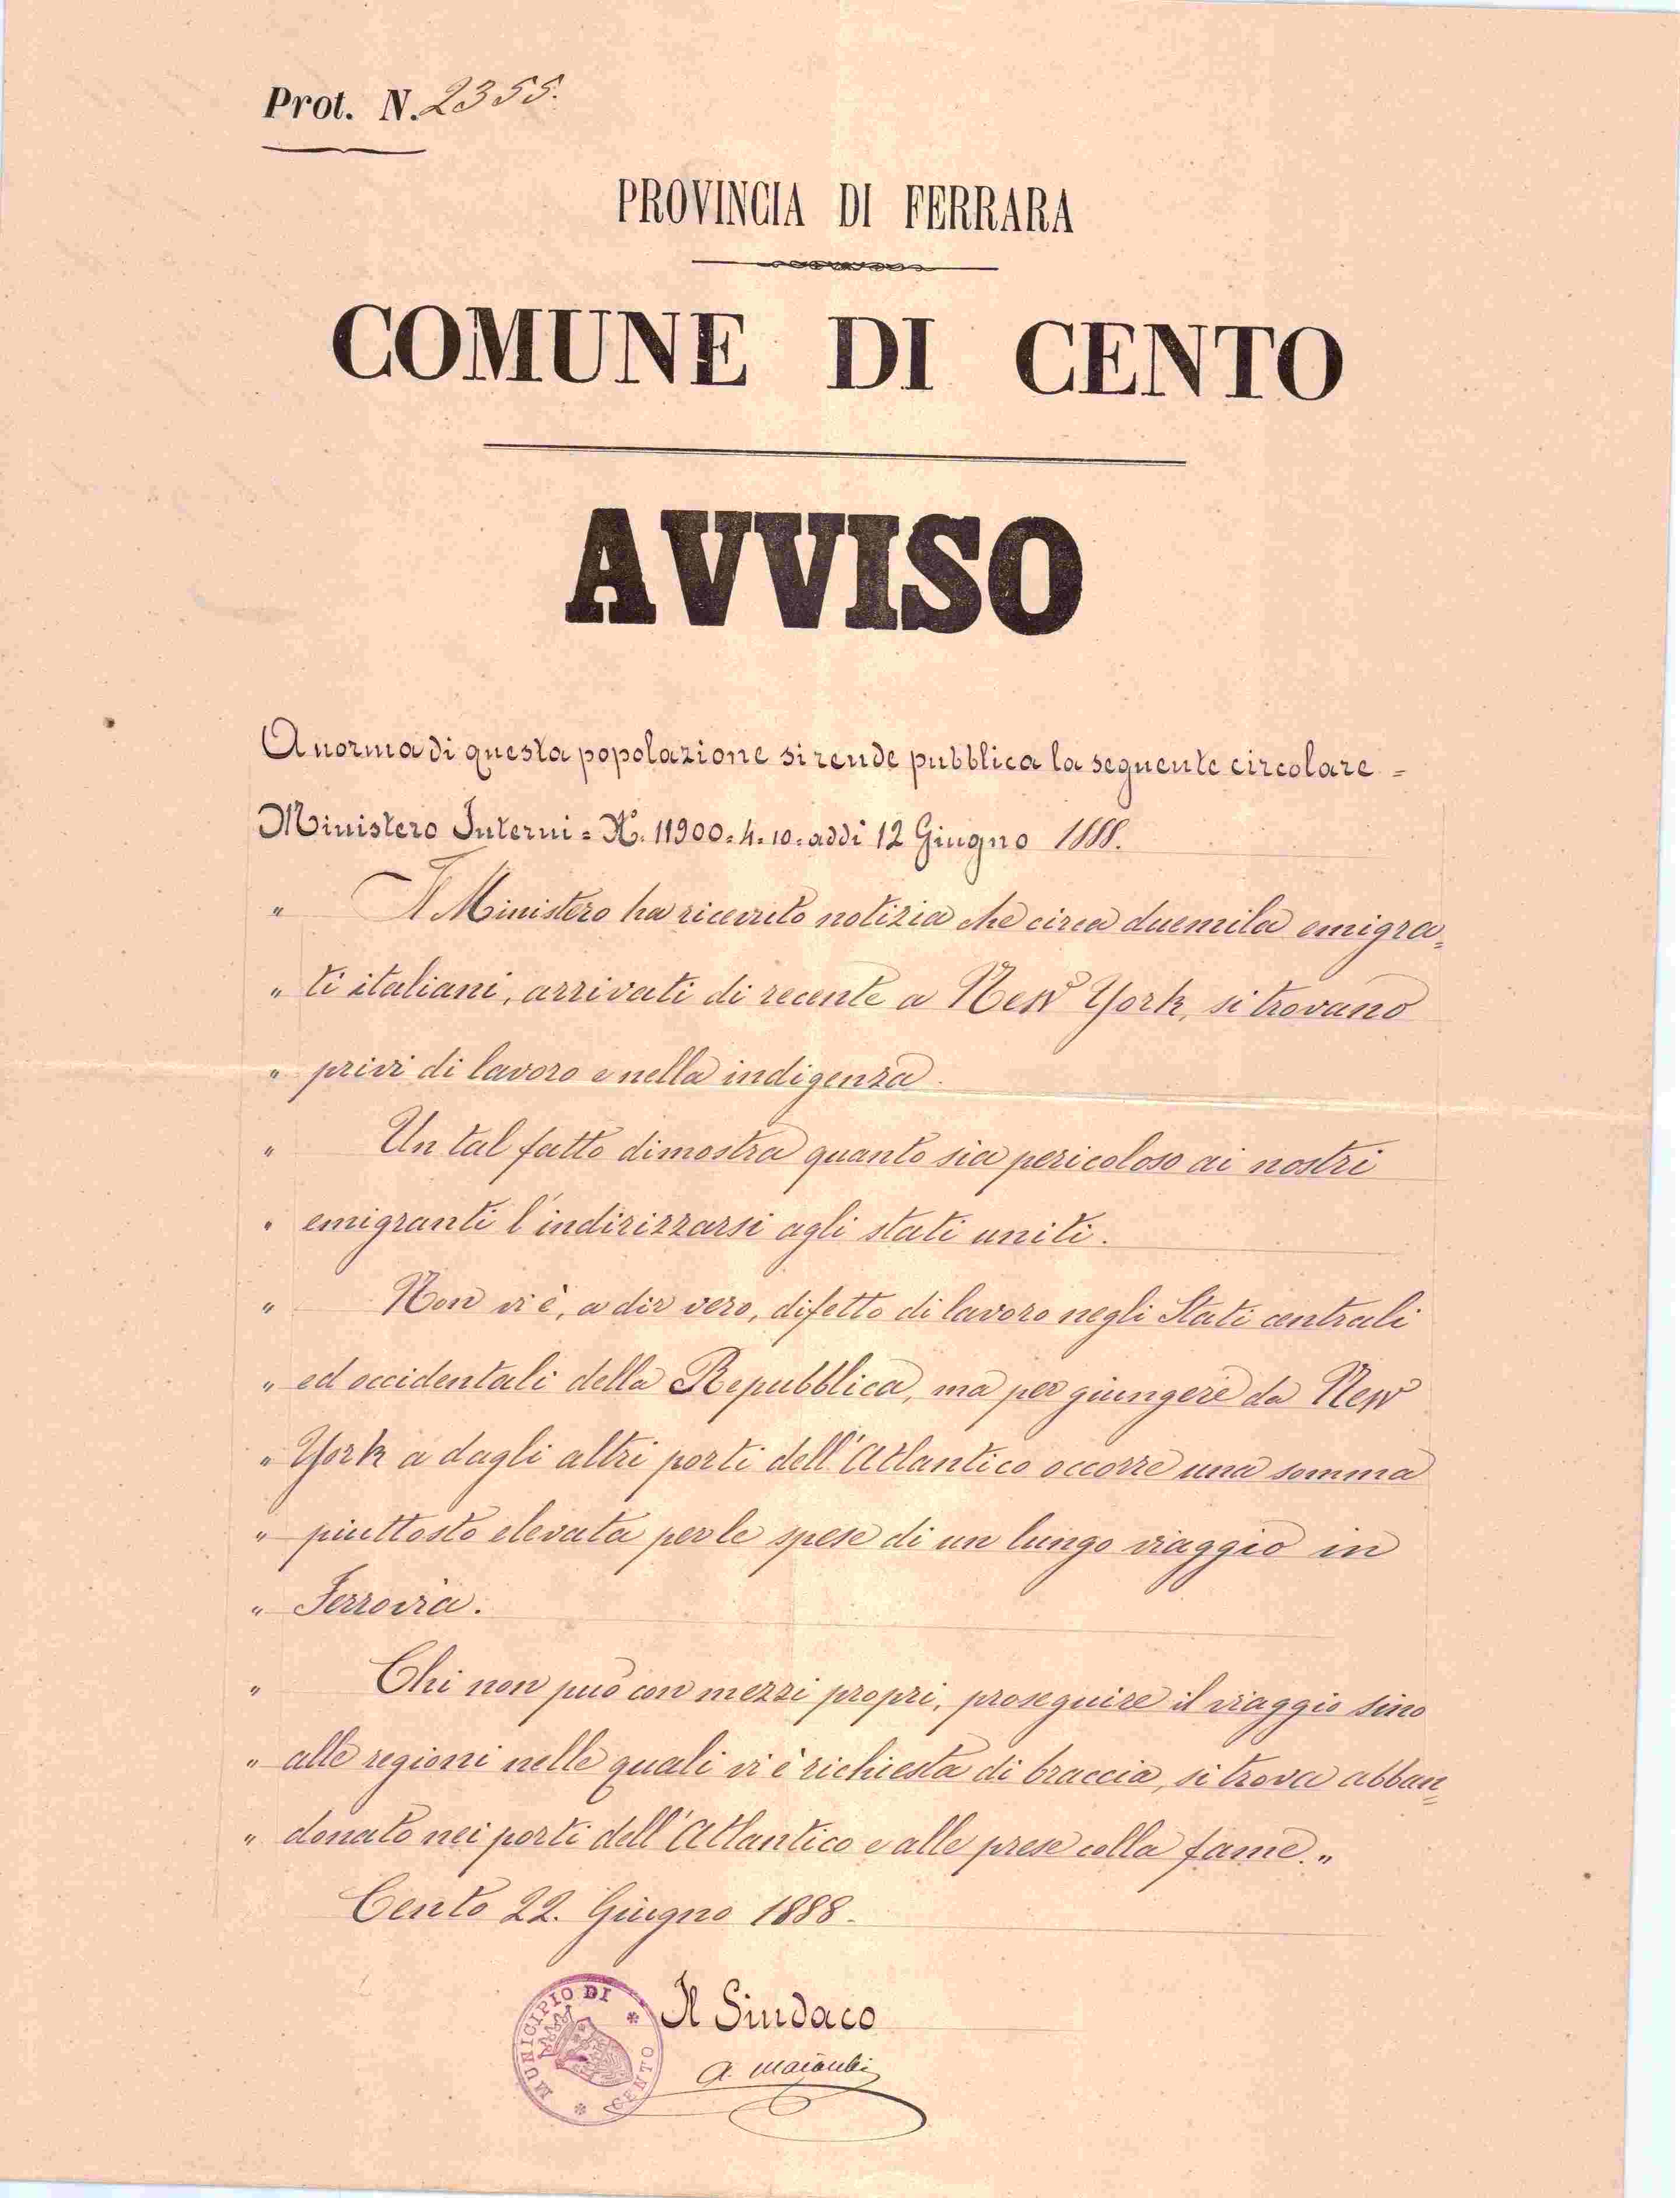 Prot. N. 2355.
PROVINCIA DI FERRARA
COMUNE DI CENTO
AVVISO
A norma di questa popolazione si rende pubblica la seguente circolare =
Ministero Interni = N. 11900=4=10= addì 12 Giugno 1888.
„ Il Ministero ha ricevuto notizia che circa duemila emigra=
„ ti italiani, arrivati di recente a New York, si trovano
„ privi di lavoro e nella indigenza.
„ Un tal fatto dimostra quanto sia pericoloso ai nostri
„ emigranti l'indirizzarsi agli stati uniti.
„ Non vi è, a dir vero, difetto di lavoro negli Stati centrali
„ ed occidentali della Repubblica, ma per giungere da New
„ York a dagli altri porti dell'Atlantico occorre una somma
„ piuttosto elevata per le spese di un lungo viaggio in
„ Ferrovia.
„ Chi non può con mezzi propri, proseguire il viaggio sino
„ alle regioni nelle quali vi è richiesta di braccia, si trova abban=
„ donato nei porti dell'Atlantico e alle prese colla fame. „
Cento 22. Giugno 1888.
Il Sindaco
MUNICIPIO DI CENTO